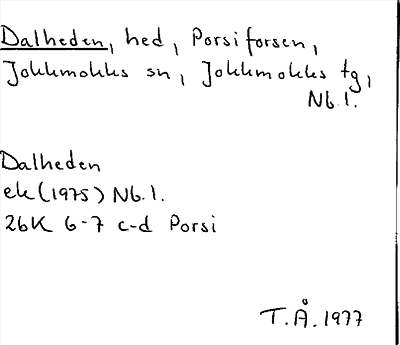 Dalheden, hed, Porsiforsen,
Jokkmokks sn, Jokkmokks tg,
Nb.l.
Dalheden
ek (1975) Nb.l.
26K 6-7 c-d Porsi
T.Å. 1977